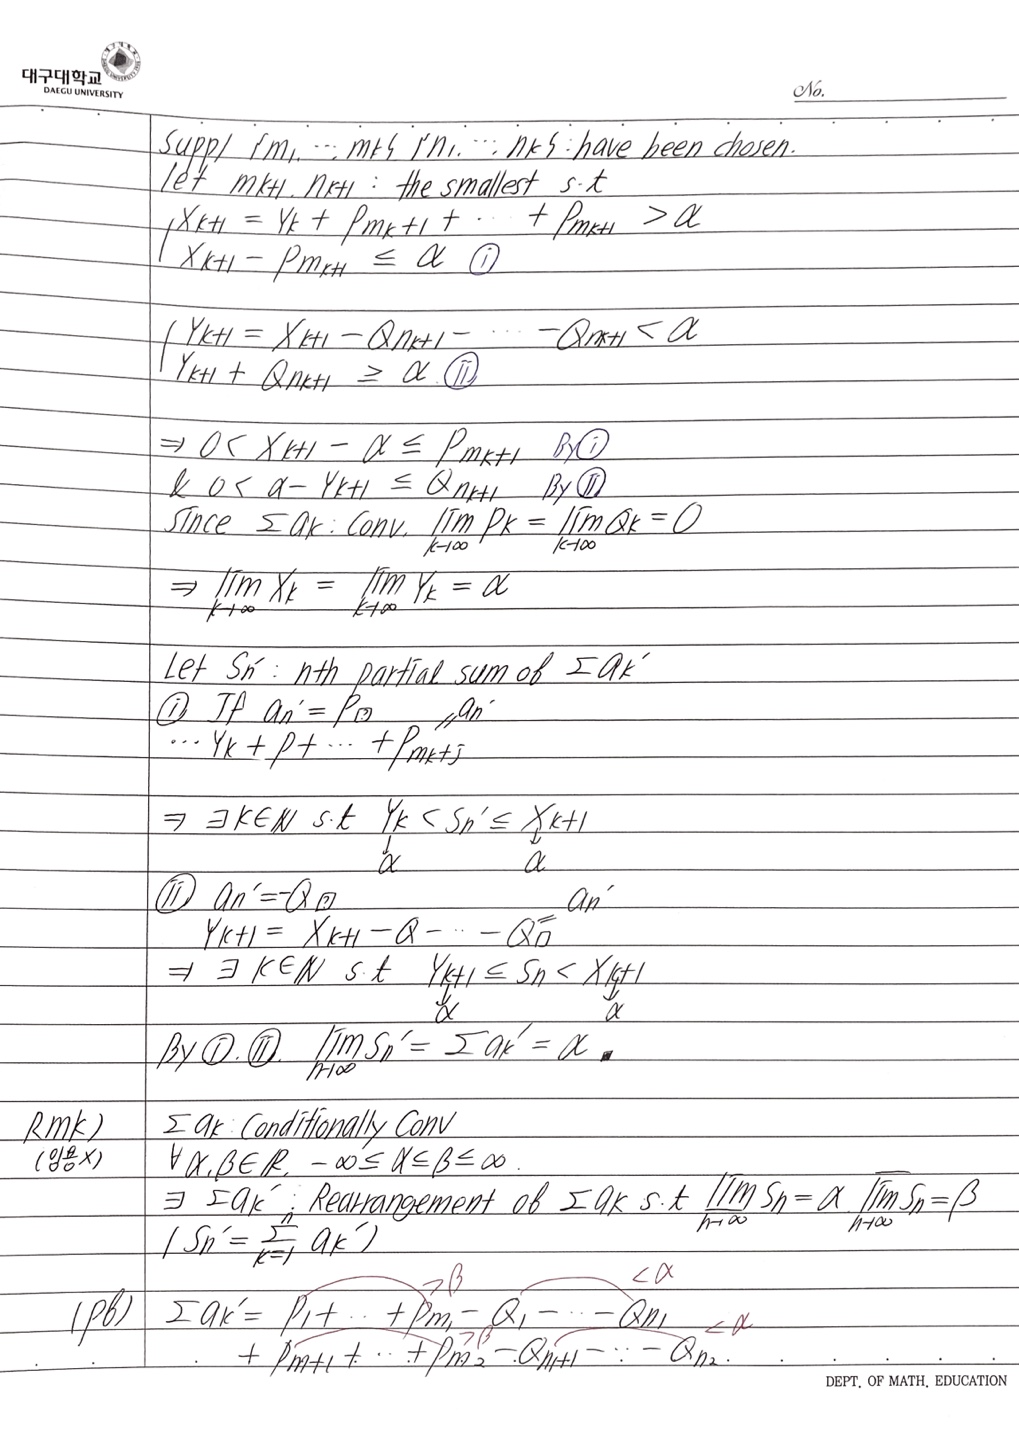 대구대학교
DAEGU UNIVERSITY
No.
Supp/ {m₁, ⋯, mₖ} {n₁, ⋯, nₖ} : have been chosen.
let mₖ₊₁, nₖ₊₁ : the smallest s.t
Xₖ₊₁ = Yₖ + P_{mₖ+1} + ⋯ + P_{mₖ₊₁} > α
Xₖ₊₁ − P_{mₖ₊₁} ≤ α ⓘ
Yₖ₊₁ = Xₖ₊₁ − Q_{nₖ+1} − ⋯ − Q_{nₖ₊₁} < α
Yₖ₊₁ + Q_{nₖ₊₁} ≥ α. Ⅱ
⇒ 0 < Xₖ₊₁ − α ≤ P_{mₖ₊₁} By ⓘ
& 0 < α − Yₖ₊₁ ≤ Q_{nₖ₊₁} By Ⅱ
Since Σaₖ : Conv. lim_{k→∞} Pₖ = lim_{k→∞} Qₖ = 0
⇒ lim_{k→∞} Xₖ = lim_{k→∞} Yₖ = α
Let Sn′ : nth partial sum of Σaₖ′
ⓘ If an′ = P□ = an′
⋯ Yₖ + P + ⋯ + P_{mₖ+j}
⇒ ∃k∈ℕ s.t Yₖ < Sn′ ≤ Xₖ₊₁
↓ ↓
α α
Ⅱ an′ = −Q□ an′
Yₖ₊₁ = Xₖ₊₁ − Q − ⋯ − Q□ =
⇒ ∃k∈ℕ s.t Yₖ₊₁ ≤ Sn < Xₖ₊₁
↓ ↓
α α
By ⓘ, Ⅱ. lim_{n→∞} Sn′ = Σaₖ′ = α ■
Rmk) Σaₖ : Conditionally Conv
(임용X) ∀α, β∈ℝ, −∞ ≤ α ≤ β ≤ ∞.
∃ Σaₖ′ : Rearrangement of Σaₖ s.t lim_{n→∞} Sn = α, \overline{lim}_{n→∞} Sn = β
(Sn′ = Σ_{k=1}^{n} aₖ′)
>β <α
(pf) Σaₖ′ = P₁ + ⋯ + P_{m₁} − Q₁ − ⋯ − Q_{n₁}
>β <α
+ P_{m+1} + ⋯ + P_{m₂} − Q_{n₁+1} − ⋯ − Q_{n₂}.
DEPT. OF MATH. EDUCATION